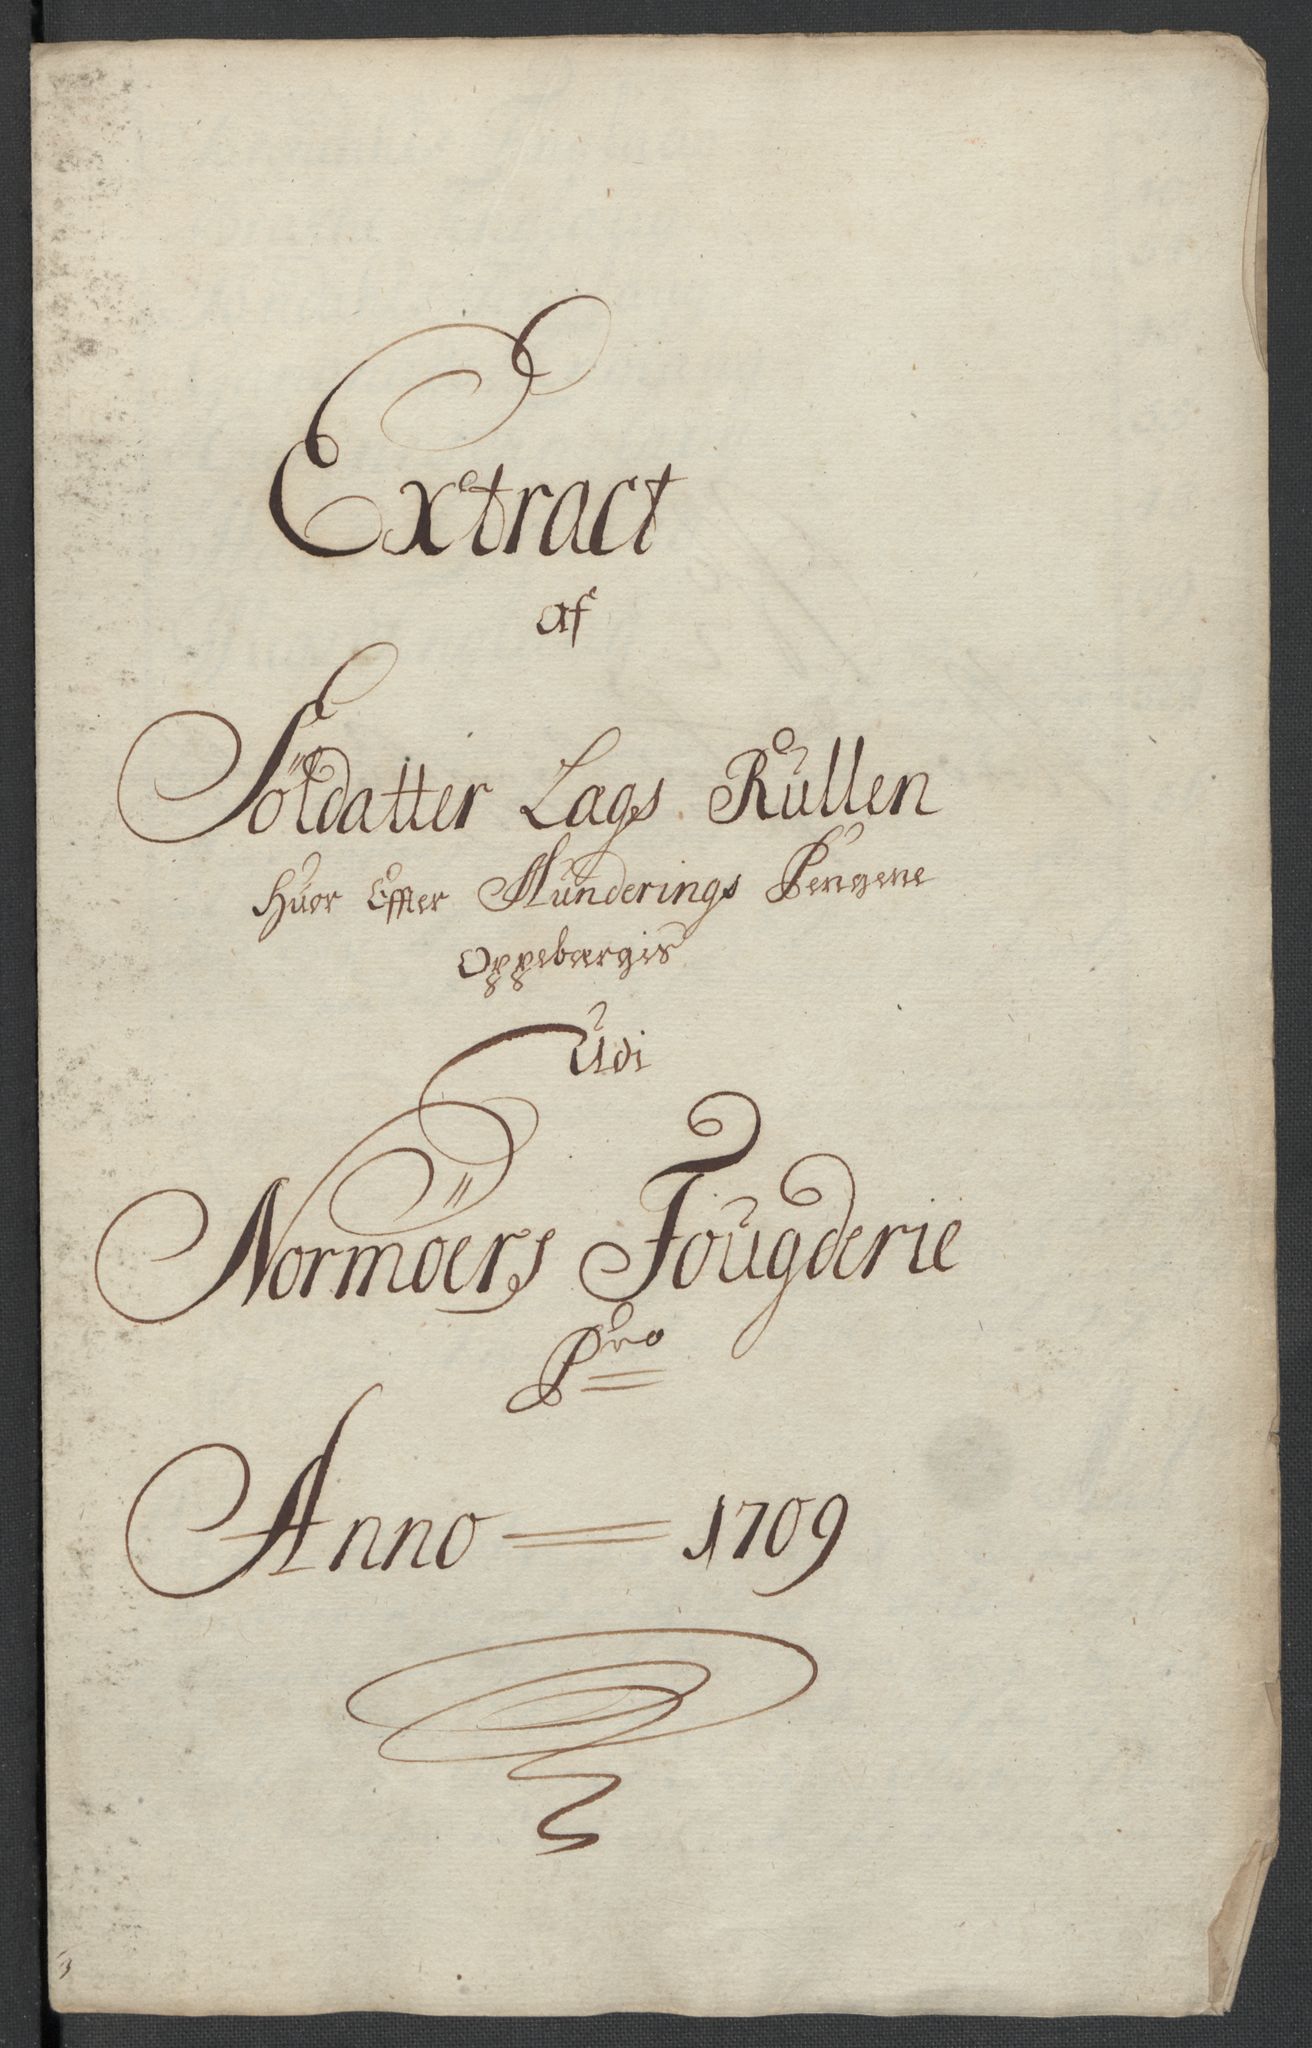 Extract
af
Söldatter Lags Rullen
Huor Effter Munderings Pengene
Oppebærgis
Udi
Normöers Fougderie
Pro
Anno 1709